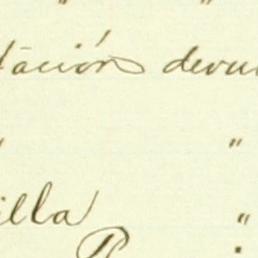 " "
tación devu
" "
illa "